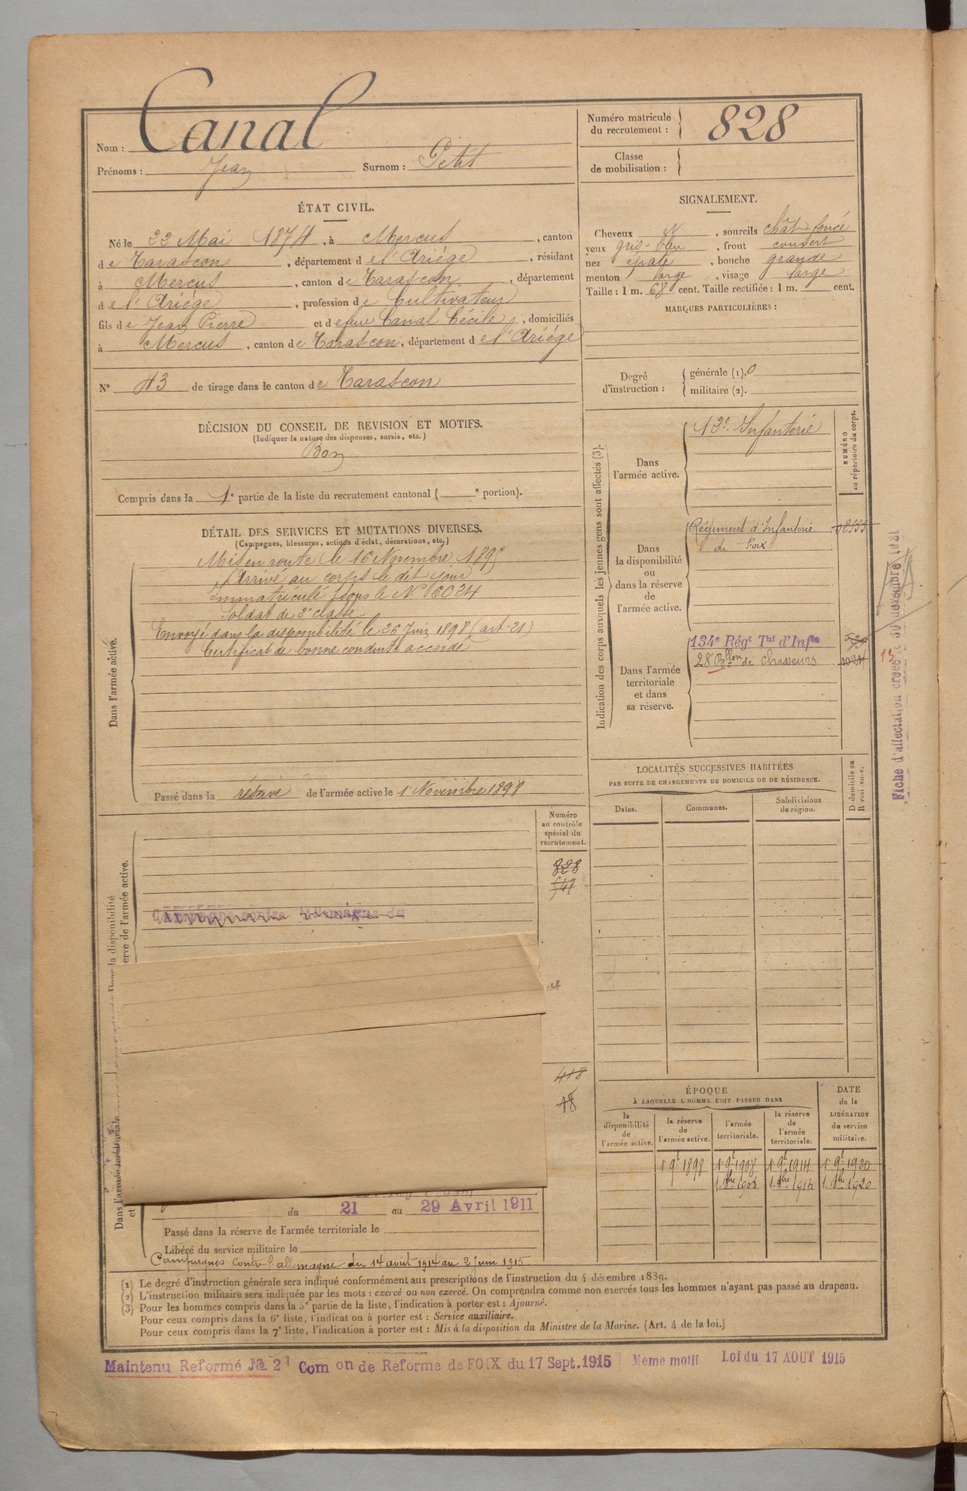 Nom : Canal
Prénoms : Jean Surnom : Petit
Numéro matricule du recrutement : 828
Classe de mobilisation :
ÉTAT CIVIL.
Né le 22 Mai 1874, à Mercus, canton
de Tarascon, département de l'Ariège, résidant
à Mercus, canton de Tarascon, département
de l'Ariège, profession de Cultivateur
fils de Jean Pierre et de feue Canal Cécile, domiciliés
à Mercus, canton de Tarascon, département de l'Ariège
N° 43 de tirage dans le canton de Tarascon
SIGNALEMENT.
Cheveux N, sourcils chât. foncé
yeux gris-bleu, front couvert
nez épaté, bouche grande
menton large, visage large
Taille : 1 m. 68 cent. Taille rectifiée : 1 m. cent.
MARQUES PARTICULIÈRES :
Degré d'instruction : générale (1). 0
militaire (2).
DÉCISION DU CONSEIL DE REVISION ET MOTIFS.
(Indiquer la nature des dispenses, sursis, etc.)
Bon
Compris dans la 1e partie de la liste du recrutement cantonal ( e portion).
DÉTAIL DES SERVICES ET MUTATIONS DIVERSES.
(Campagnes, blessures, actions d'éclat, décorations, etc.)
Dans l'armée active.
Mis en route le 16 Novembre 189
Arrivé au corps le dit jour
Immatriculé sous le N° 6024
Soldat de 2e classe
Envoyé dans la disponibilité le 26 Juin 1898 (art. 21)
Certificat de bonne conduite accordé
Passé dans la réserve de l'armée active le 1 Novembre 1898
Indication des corps auxquels les jeunes gens sont affectés (3).
NUMÉRO au répertoire du corps.
Dans l'armée active.
Infanterie
Dans la disponibilité ou dans la réserve de l'armée active.
Régiment d'Infanterie
de Foix
Dans l'armée territoriale et dans sa réserve.
134e Régt Tal d'Infie
28 Bon de Chasseurs
Fiche d'affectation
LOCALITÉS SUCCESSIVES HABITÉES
PAR SUITE DE CHANGEMENTS DE DOMICILE OU DE RÉSIDENCE.
Dates. Communes. Subdivisions de région. D domicile ou R résidence.
Numéro au contrôle spécial du recrutement.
828
ÉPOQUE
À LAQUELLE L'HOMME DOIT PASSER DANS
la disponibilité de l'armée active. la réserve de l'armée active. l'armée territoriale. la réserve de l'armée territoriale.
DATE de la LIBÉRATION du service militaire.
1898 1908 1914 1920
1914 1920
du 21 au 29 Avril 1911
Passé dans la réserve de l'armée territoriale le
Libéré du service militaire le
Campagnes contre l'allemagne du 14 août 1914 au 2 juin 1915
(1) Le degré d'instruction générale sera indiqué conformément aux prescriptions de l'instruction du 4 décembre 1889.
(2) L'instruction militaire sera indiquée par les mots : exercé ou non exercé. On comprendra comme non exercés tous les hommes n'ayant pas passé au drapeau.
(3) Pour les hommes compris dans la 5e partie de la liste, l'indication à porter est : Ajourné.
Pour ceux compris dans la 6e liste, l'indication à porter est : Service auxiliaire.
Pour ceux compris dans la 7e liste, l'indication à porter est : Mis à la disposition du Ministre de la Marine. (Art. 4 de la loi.)
Maintenu Reformé N° 2 Com on de Réforme de FOIX du 17 Sept. 1915 Meme motif Loi du 17 AOUT 1915